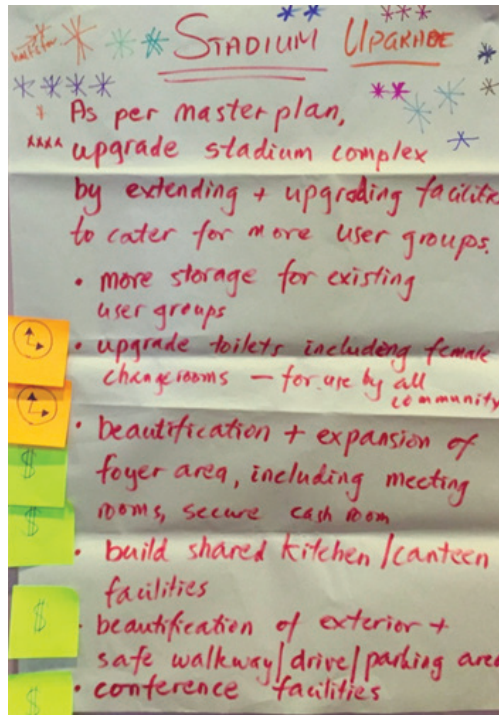 STADIUM UPGRADE
As per master plan,
upgrade stadium complex
by extending + upgrading facilitie
to cater for more user groups.
• more storage for existing
user groups
• upgrade toilets including female
changerooms — for use by all
community
• beautification + expansion of
foyer area, including meeting
rooms, secure cash room
• build shared kitchen/canteen
facilities
• beautification of exterior +
safe walkway/drive/parking area
• conference facilities
$
$
$
$